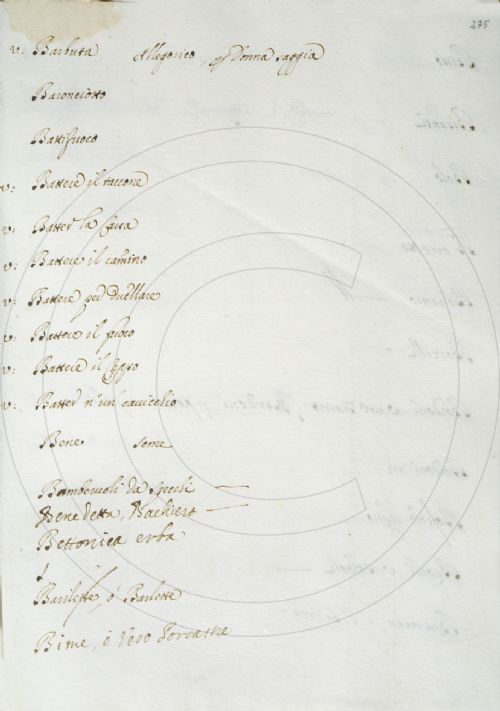 275
v: Barbuta Allegorico, p Donna saggia
Baronciotto
Battifuoco
v: Battere il taccone
v: Batter la cacca
v: Battere il camino
v: Battere per duellare
v: Battere il fuoco
v: Battere il
v: Batter n'un cavicchio
Bene seme
Bamboccioli da specchi —
Benedetta, Bachiert —
Bettonica erba
Barilette, ó Barlette
Bime, ó vero Porcastre